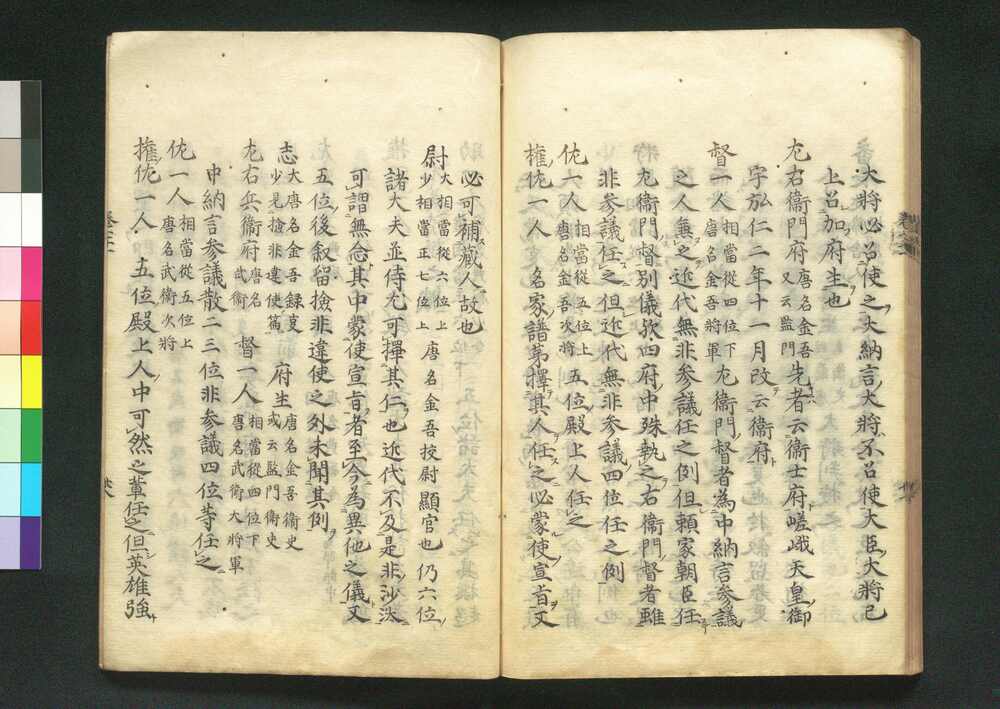 番大將必召使之大納言大將不召使大臣大將已
上召加府生也
左右衛門府唐名金吾又云監門先者云衛士府嵯峨天皇御
宇弘仁二年十一月改云衛府
督一人相當從四位下唐名金吾將軍左衛門督者為中納言參議
之人兼之近代無非參議任之例但頼家朝臣任
左衛門督別儀歟四府中殊執之右衛門督者雖
非參議任之但近代無非參議四位任之例
佐一人相當從五位上唐名金吾次將五位殿上人任之
權佐一人名家譜第擇其人任之必蒙使宣旨又
必可補藏人故也
尉大相當從六位上少相當正七位上唐名金吾校尉顯官也仍六位
諸大夫並侍尤可擇其仁也近代不及是非沙汰
可謂無念其中蒙使宣旨者至今為異他之儀又
五位後叙留撿非違使之外未聞其例
志大唐名金吾録事少見撿非違使篇府生唐名金吾衛史或云監門衛史
左右兵衛府唐名武衛督一人相當從四位下唐名武衛大將軍
中納言參議散二三位非參議四位等任之
佐一人相當從五位上唐名武衛次將
權佐一人五位殿上人中可然之輩任之但英雄強